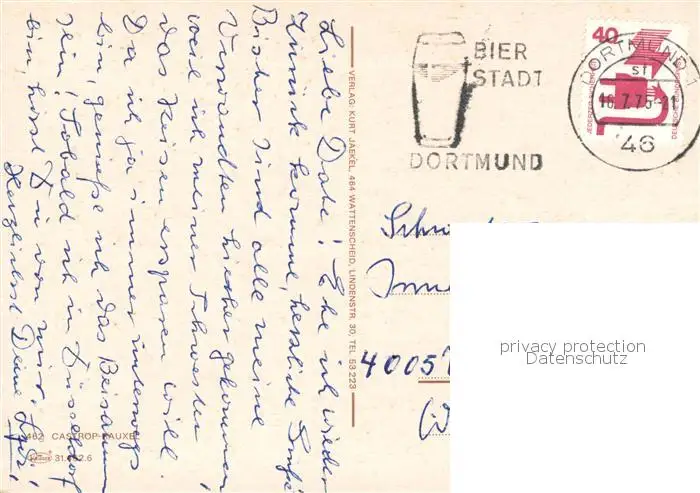 Liebe Date! Ehe ich wieder
zurück komme, herzliche Grüße
Bisher sind alle meine
Verwandten hierher gekommen,
weil ich meiner Schwester
das Reisen ersparen will.
Da ich ja immer unterwegs
bin, genieße ich das Beisammen
sein! Sobald ich in Düsseldorf
bin, hörst Du von mir.
Herzlichst Deine
VERLAG: KURT JAEKEL, 464 WATTENSCHEID, LINDENSTR. 30, TEL 53 223
462 CASTROP-RAUXEL
31.
BIER
STADT
DORTMUND
40
DORTMUND 1
46
4005
privacy protection
Datenschutz